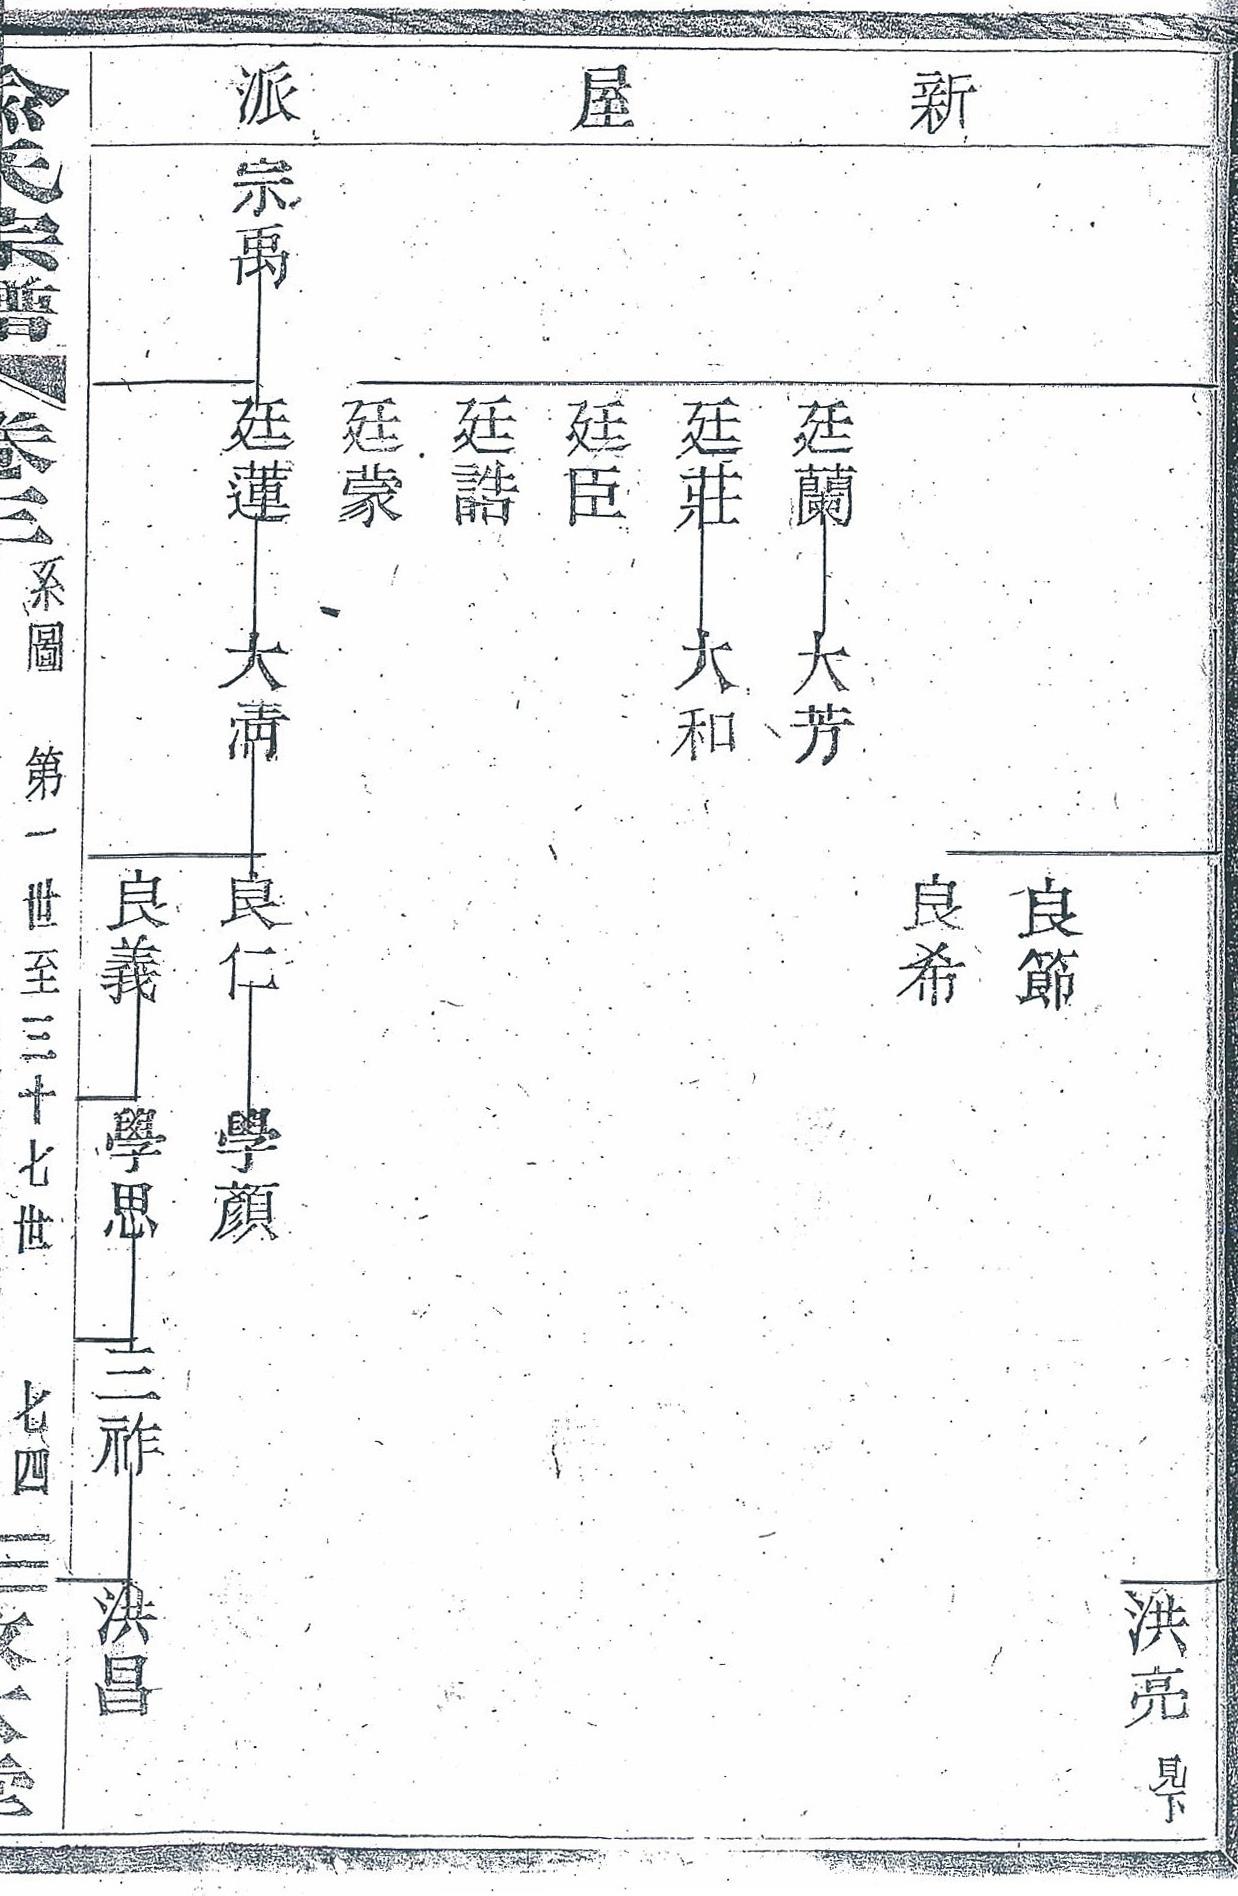 新屋派
洪亮 見下
良節
良希
廷蘭 大芳
廷莊 大和
廷臣
廷誥
廷蒙
宗禹 廷蓮 大淸 良仁 學顏
良義 學思 三祚 洪昌
俞氏宗譜 卷三 系圖 第一世至三十七世 七四